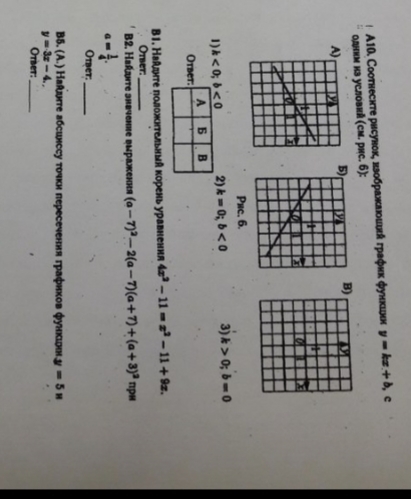 А10. Соотнесите рисунок, изображающий график функции y = kx + b, с
одним из условий (см. рис. 6):
А) Б) В)
y y y
1 1 1
0 1 x 0 1 x 0 1 x
Рис. 6.
1) k < 0; b < 0 2) k = 0; b < 0 3) k > 0; b = 0
Ответ: А Б В
В1. Найдите положительный корень уравнения 4x² − 11 = x² − 11 + 9x.
Ответ:
В2. Найдите значение выражения (a − 7)² − 2(a − 7)(a + 7) + (a + 3)² при
a = 1/4.
Ответ:
В5. (А.) Найдите абсциссу точки пересечения графиков функции y = 5 и
y = 3x − 4.
Ответ: